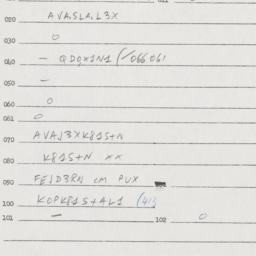 020 AVASLAL3X
030 0
040 - QDQX1N1 (/066061
050 -
060 0
061 0
070 AVAJ3XK81S+N
080 K81S+N XX
090 FEJD3RN CM PUX
100 KOPK81S+AL1 (41)
101 - 102 0